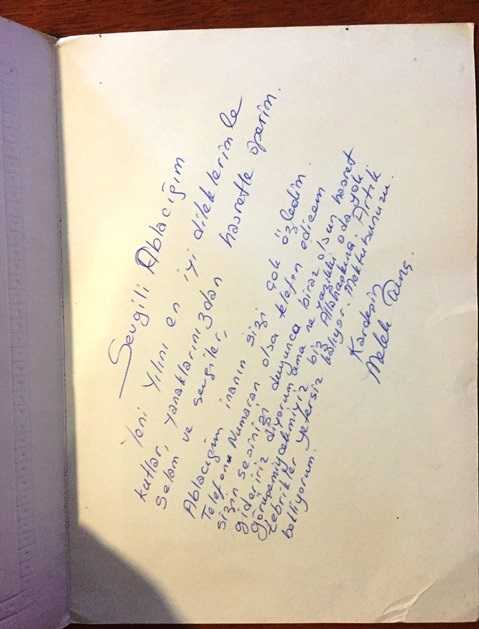 Sevgili Ablacığım
Yeni Yılını en iyi dileklerimle
kutlar, yanaklarınızdan hasretle öperim.
Selam ve sevgiler,
Ablacığım inanın sizi çok özledim.
Telefon Numaran olsa telefon edicem
sizin sesinizi duyunca biraz olsun hasret
gideririz diyorum ama ne yazıkki oda yok
görüşemiyecekmiyiz biz Allahaşkına. Artık
tebrikler yetersiz kalıyor. Mektubunuzu
bekliyorum.
Kardeşin
Melek